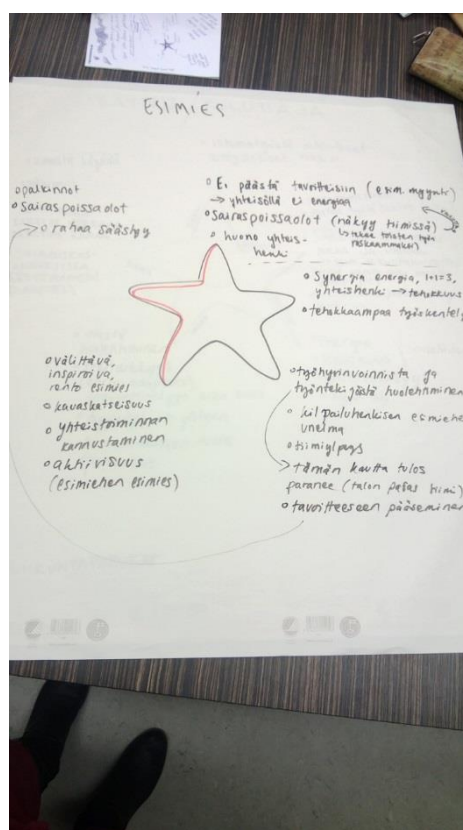 ESIMIES
o palkinnot
o sairaspoissaolot
→ o rahaa säästyy
o Ei päästä tavoitteisiin (esim. myynti)
→ yhteisöllä ei energiaa
o sairaspoissaolot (näkyy tiimissä)
↳ tekee toisten työn
raskaammaksi)
o huono yhteis-
henki
o Synergia energia, 1+1=3,
yhteishenki → tehokkuus
o tehokkaampaa työskentely
o välittävä,
inspiroiva,
rento esimies
o kauaskatseisuus
o yhteistoiminnan
kannustaminen
o aktiivisuus
(esimiehen esimies)
o työhyvinvoinnista ja
työntekijästä huolehtiminen
o kilpailuhenkisen esimiehen
unelma
o tiimiylpeys
→ tämän kautta tulos
paranee (talon paras tiimi)
o tavoitteeseen pääseminen